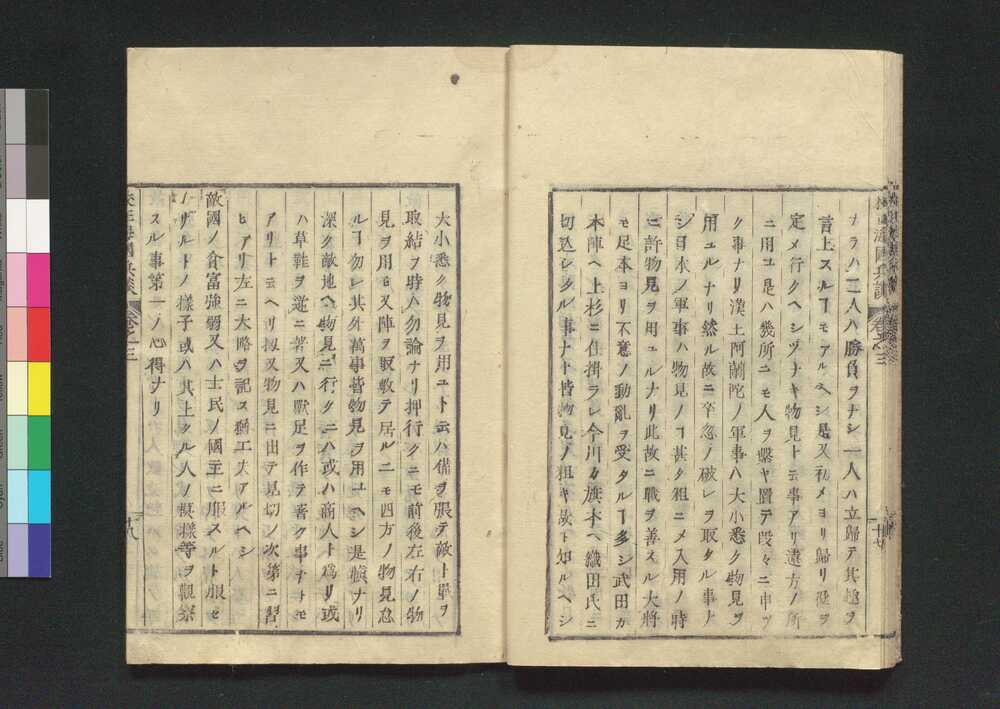 ナラハ二人ハ勝負ヲナシ一人ハ立歸テ其趣ヲ
言上スルヿモアルヘシ是又初メヨリ歸リ役ヲ
定メ行クヘシツナキ物見ト云事アリ遠方ノ所
ニ用ユ是ハ幾所ニモ人ヲ繫キ置テ段々ニ申ツ
ク事ナリ漢土阿蘭陀ノ軍事ハ大小悉ク物見ヲ
用ユルナリ然ル故ニ卒忽ノ破レヲ取タル事ト
シ日本ノ軍事ハ物見ノヿ甚タ粗ニメ入用ノ時
許物見ヲ用ユルナリ此故ニ戰ヲ善スル大將
モ足本ヨリ不意ノ動亂ヲ受タルヿ多シ武田カ
本陣ヘ上杉ニ仕掛ラレ今川カ旗本ヘ織田氏ニ
切込レタル事ナト皆物見ノ粗キ故ト知ルヘシ
大小悉ク物見ヲ用ユト云ハ備ヲ張テ敵ト軍ヲ
取結フ時ハ勿論ナリ押行クニモ前後左右ノ物
見ヲ用モ又陣ヲ取敷テ居ルニモ四方ノ物見怠
ルヿ勿レ其外萬事皆物見ヲ用ユヘシ是愼ナリ
深ク敵地ヘ物見ニ行クニハ或ハ商人ト爲リ或
ハ草鞋ヲ逆ニ著又ハ獸足ヲ作テ著ク事ナトモ
アリト云ヘリ扨又物見ニ出テ見切ノ次第ニ習
ヒアリ左ニ大略ヲ記ス猶工夫アルヘシ
敵國ノ貪富強弱又ハ士民ノ國主ニ服スルト服セ
サルトノ樣子或ハ其上タル人ノ模樣等ヲ觀察
スル事第一ノ心得ナリ
海國兵談 卷之三 十九